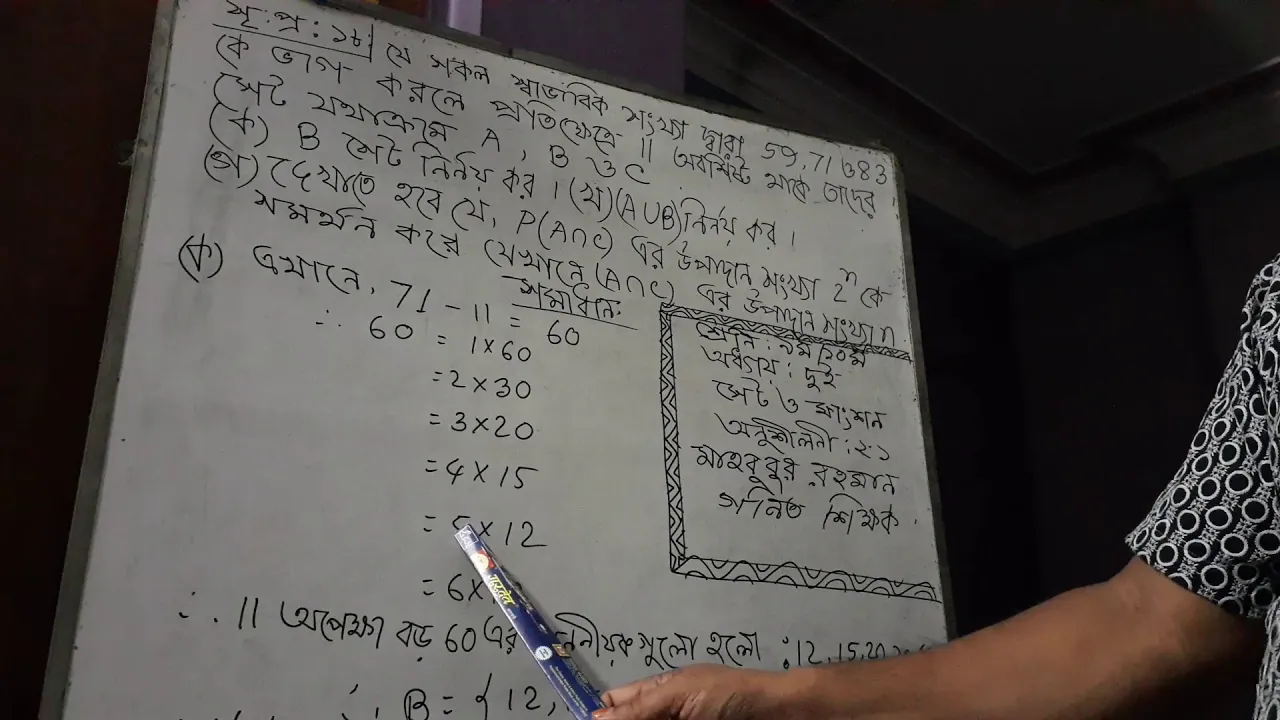 সৃ: প্র: ১৮। যে সকল স্বাভাবিক সংখ্যা দ্বারা 59, 71 ও 83
কে ভাগ করলে প্রতিক্ষেত্রে 11 অবশিষ্ট থাকে তাদের
সেট যথাক্রমে A, B ও C.
(ক) B সেট নির্নয় কর। (খ) (A∪B) নির্নয় কর।
(গ) দেখাতে হবে যে, P(A∩C) এর উপাদান সংখ্যা 2ⁿ কে
সমর্থন করে যেখানে (A∩C) এর উপাদান সংখ্যা n
সমাধান:
(ক) এখানে, 71 - 11 = 60
∴ 60 = 1×60
= 2×30
= 3×20
= 4×15
= 5×12
= 6×
∴ 11 অপেক্ষা বড় 60 এর গুলো হলো : 12, 15, 20,
B = { 12,
শ্রেনি : ৯ম/১০ম
অধ্যায় : দুই
সেট ও ফাংশন
অনুশীলনী : ২.১
মাহবুবুর রহমান
গনিত শিক্ষক